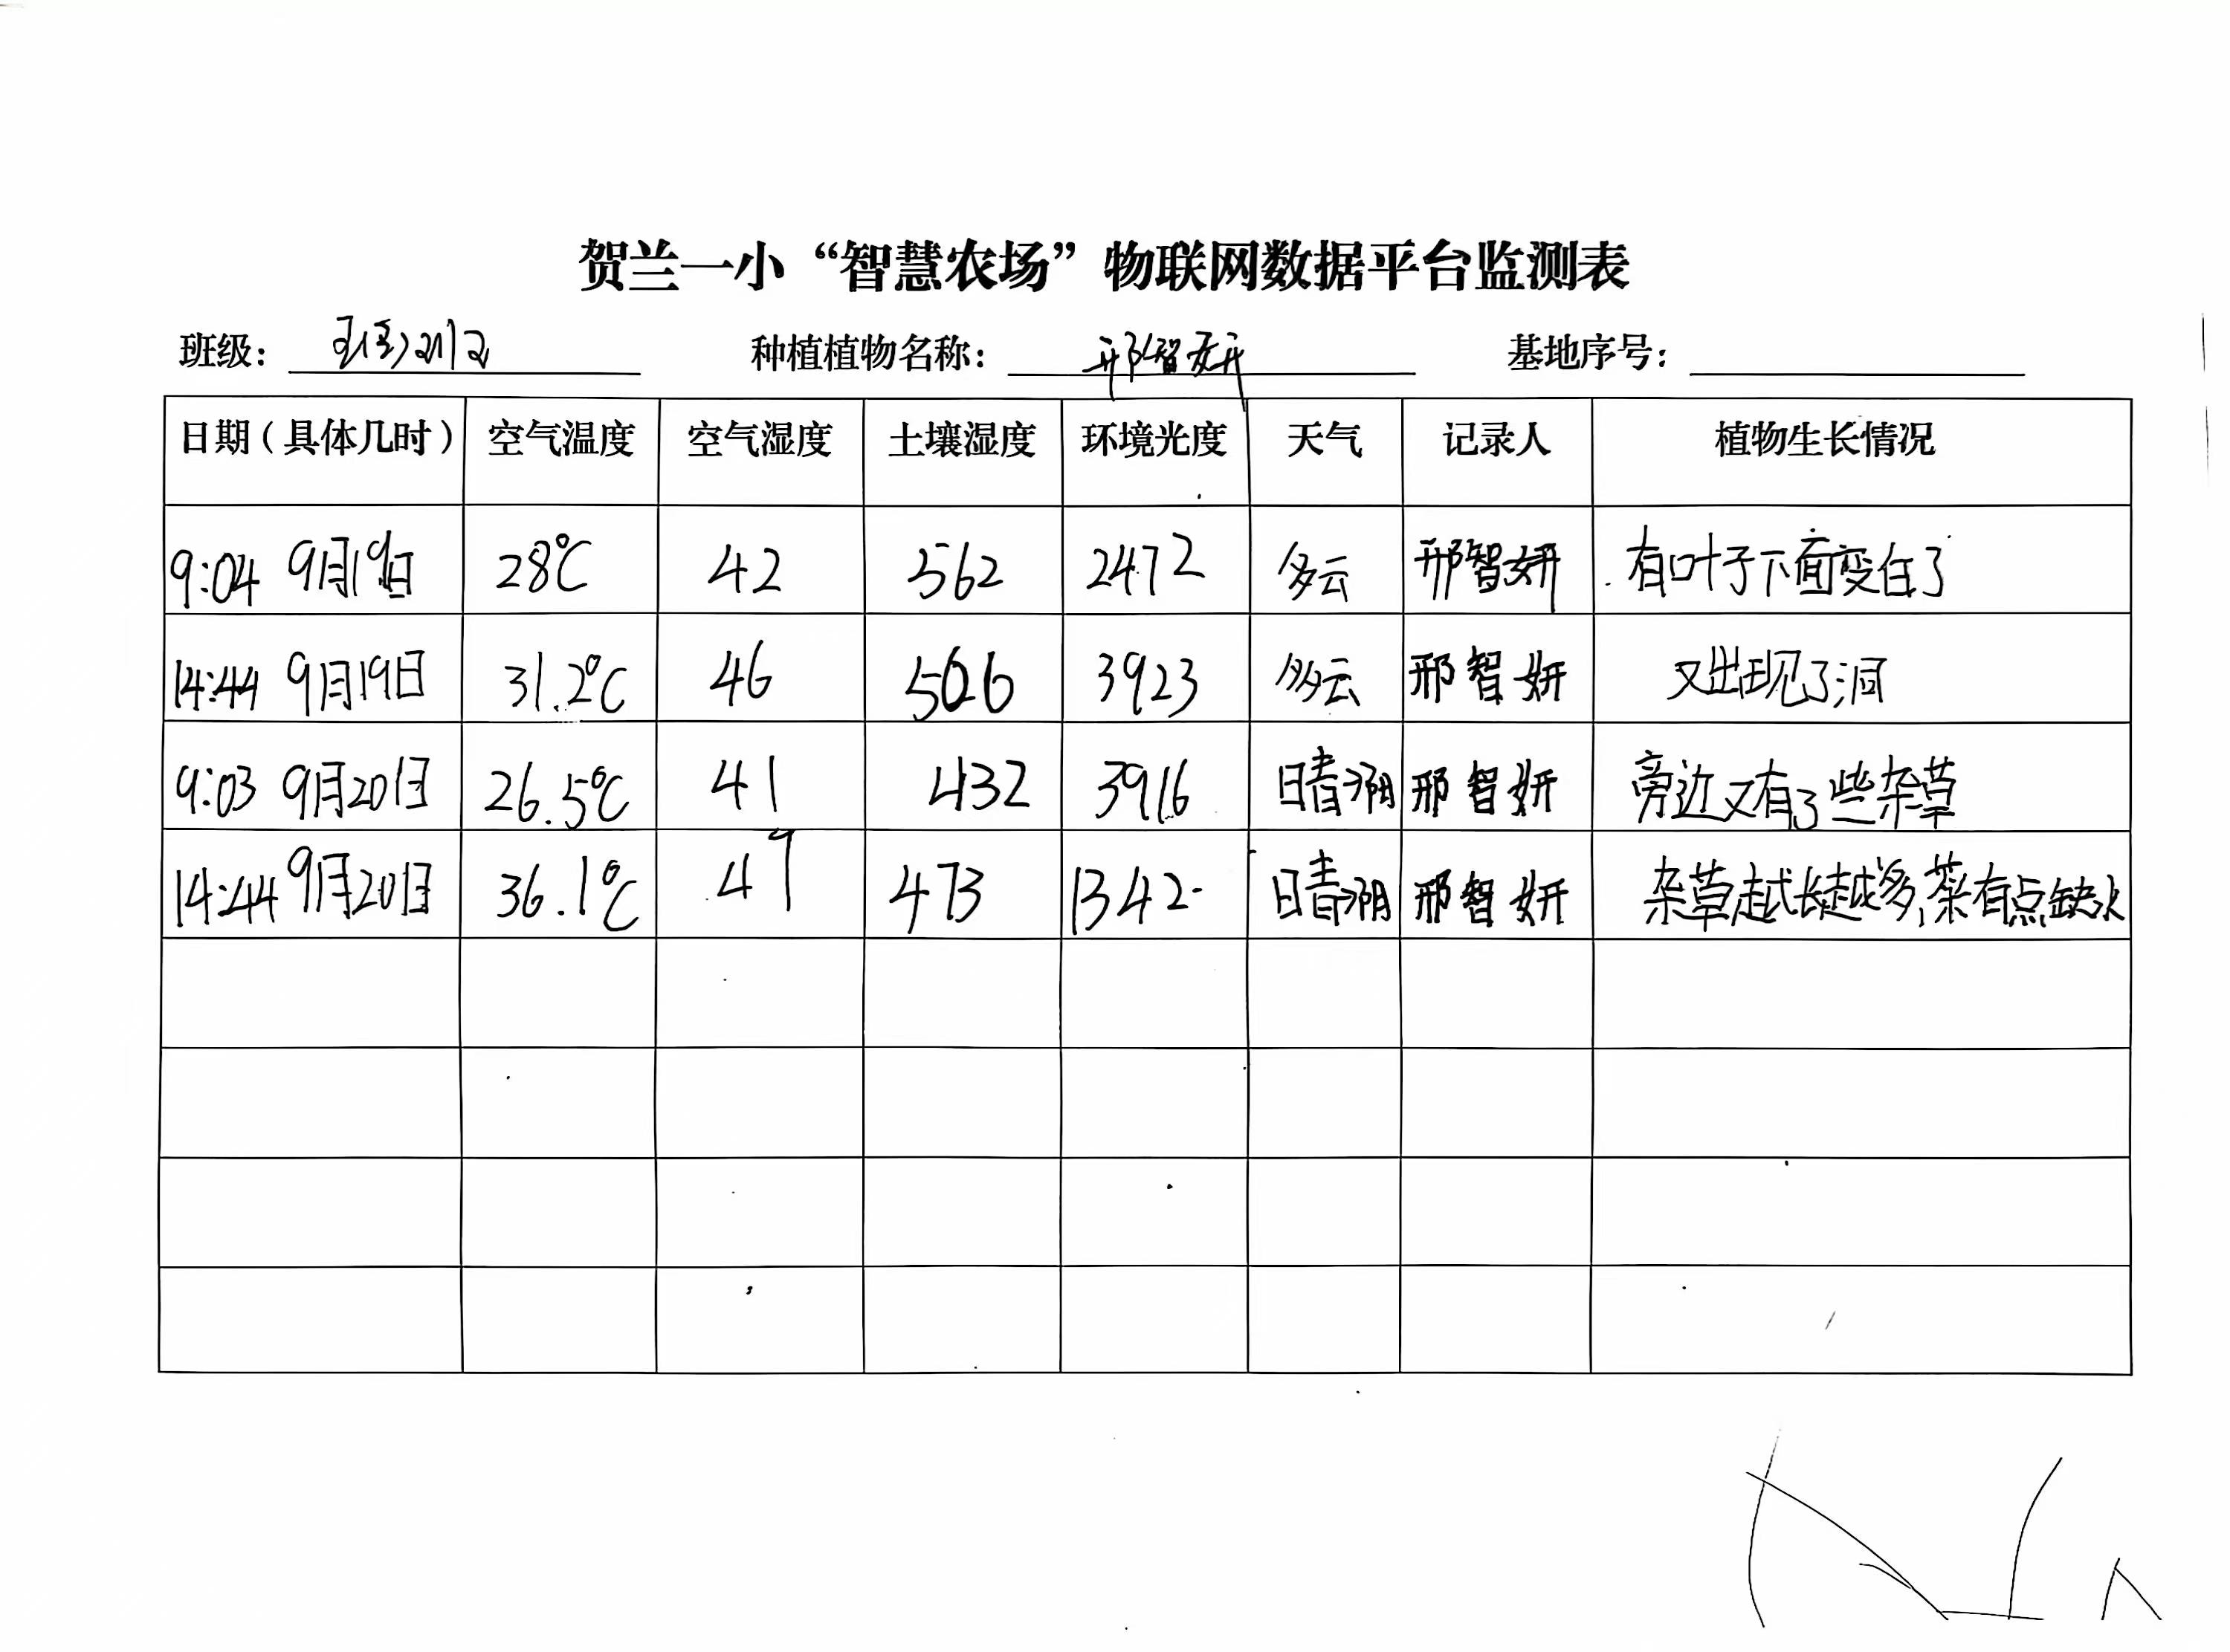 贺兰一小“智慧农场”物联网数据平台监测表
班级： 种植植物名称： 邢智妍 基地序号：
日期（具体几时） 空气温度 空气湿度 土壤湿度 环境光度 天气 记录人 植物生长情况
9:04 9月19日 28℃ 42 562 2472 多云 邢智妍 有叶子下面变白了
14:44 9月19日 31.2℃ 46 506 3923 多云 邢智妍 又出现了洞
9:03 9月20日 26.5℃ 41 432 3916 晴阴 邢智妍 旁边又有了些杂草
14:44 9月20日 36.1℃ 47 473 1342 晴阴 邢智妍 杂草越长越多,菜有点缺水